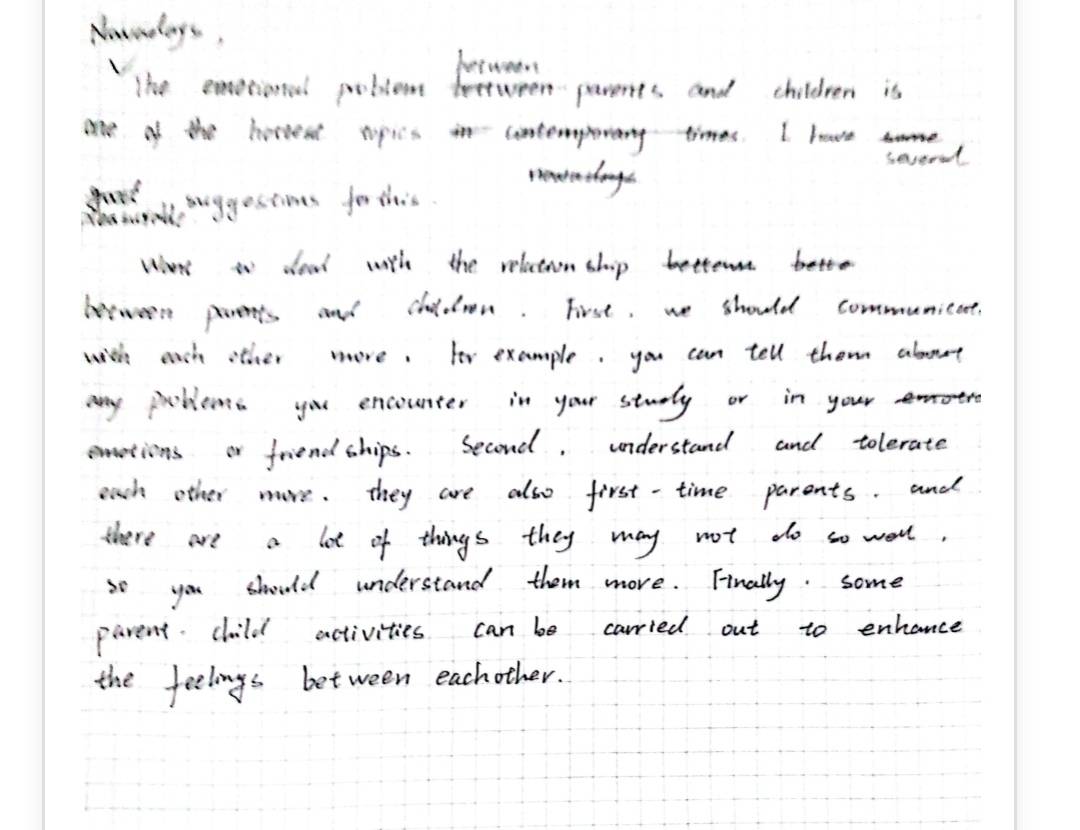 Nowadays,
between
The emotional problem bettween parents and children is
one of the hottest topics in contemporary times. I have some
several
nowadays
good suggestions for this.
Want to deal with the relation ship bettewn bette
between parents and children. First, we should communicate
with each other more. For example, you can tell them about
any problems you encounter in your study or in your emotio
emotions or friendships. Second, understand and tolerate
each other more. they are also first-time parents. and
there are a lot of things they may not do so well,
so you should understand them more. Finally. some
parent-child activities can be carried out to enhance
the feelings between eachother.